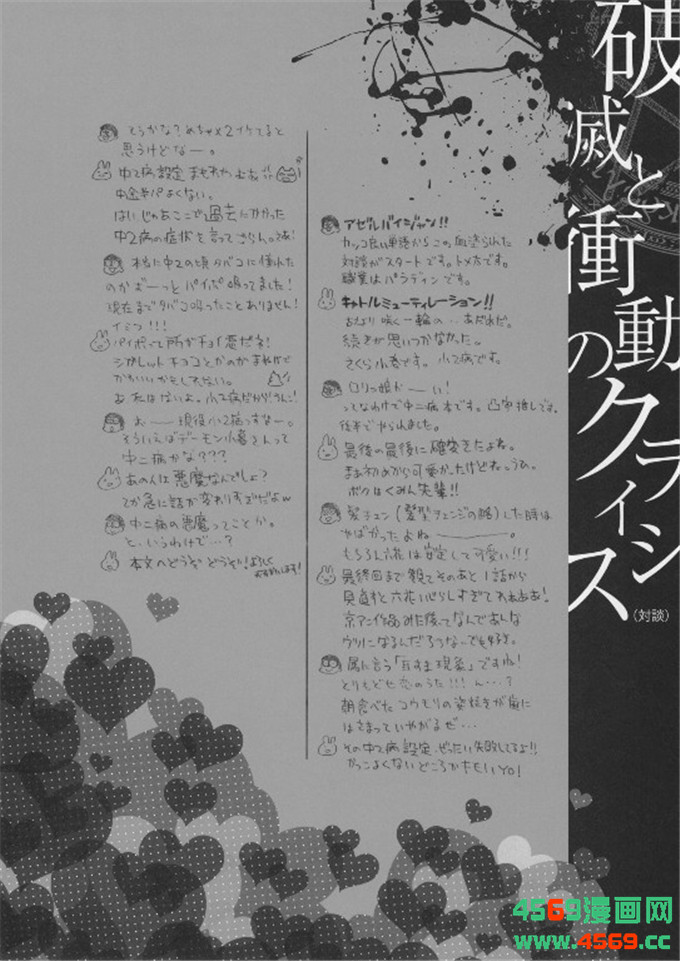 破滅と衝動のクライシス
(対談)
アゼルバイジャン!!
カッコ良い単語からこの血塗られた
対談がスタートです。トメ太です。
職業はパラディンです。
キャトルミューティレーション!!
続きが思いつかなかった。
さくら小春です。小2病です。
ロリっ娘かーい!
ってなわけで中二病本です。凸守推しです。
後半でやられました。
最後の最後に確変きたよね。
まぁ初めから可愛かったけどね。うひ。
ボクはくみん先輩!!
髪チェン(髪型チェンジの略)した時は
やばかったよねー。
もちろん六花は安定して可愛い!!!
最終回まで観てそのあと1話から
見直すと六花いじらしすぎて
京アニ作品みた後ってなんであんな
ウツになるんだろうなー
俗に言う「耳すま現象」ですね!
とりもどせ恋のうた!!!ん…?
朝食べたコウモリの姿焼きが歯に
はさまっていやがるぜ…
その中2病設定、ぜったい失敗してるよ!!
かっこよくないどころかキモいYO!
そうかな?めちゃ×2イケてると
思うけどなー。
中2病設定
中途半パよくない。
はい じゃあここで過去にかかった
中2病の症状を言ってもらいましょ!
本当に中2の頃タバコに憧れた
のかずーっとパイポ吸ってました!
現在までタバコ吸ったことありません!
イミフ!!!
パイポって所がチョイ悪だネ!
シガレットチョコとかのがまねかで
かわいいかもしれない。
おーー現役小2病っすなー。
そういえばデーモン小暮さんって
中二病かな???
あの人は悪魔なんでしょ?
てか急に話が変わりすぎだよw
中二病の悪魔ってことか。
と、いうわけで…?
本文へどうぞどうぞ!よろしく
おねがいします!
4569漫画网
www.4569.cc